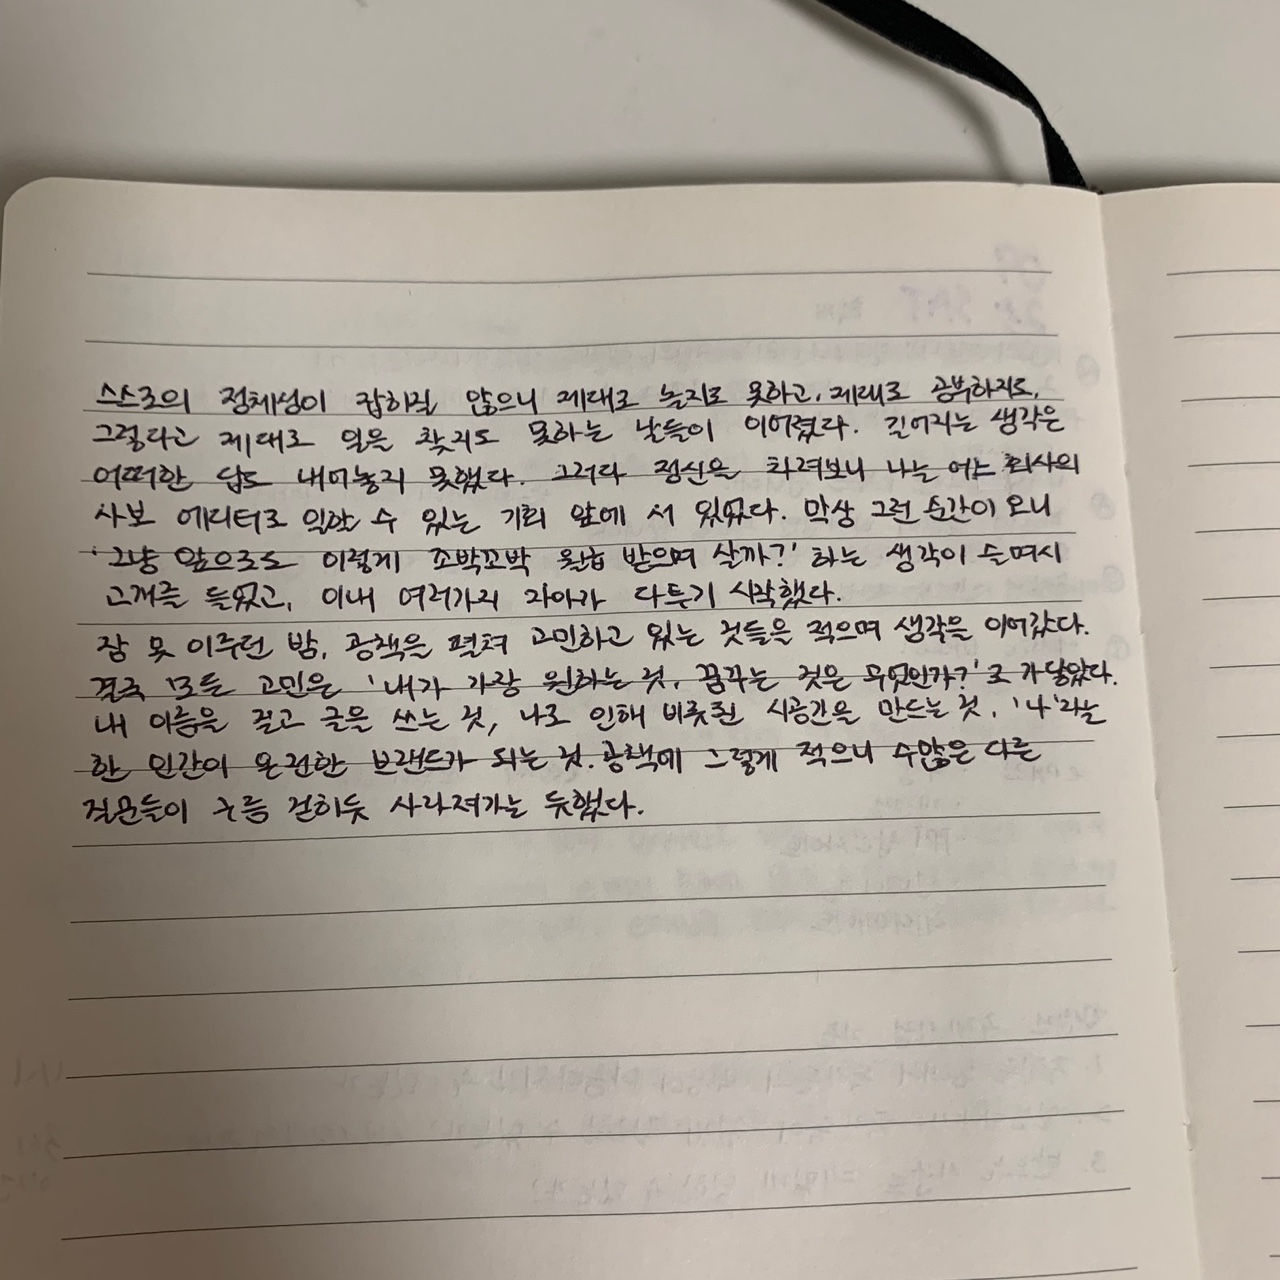 스스로의 정체성이 잡히질 않으니 제대로 놀지도 못하고, 제대로 공부하지도,
그렇다고 제대로 일을 찾지도 못하는 날들이 이어졌다. 길어지는 생각은
어떠한 답도 내어놓지 못했다. 그러다 정신을 차려보니 나는 어느 회사의
사보 에디터로 일할 수 있는 기회 앞에 서 있었다. 막상 그런 순간이 오니
'그냥 앞으로도 이렇게 꼬박꼬박 월급 받으며 살까?' 하는 생각이 슬며시
고개를 들었고, 이내 여러가지 자아가 다투기 시작했다.
잠 못 이루던 밤, 공책을 펼쳐 고민하고 있는 것들을 적으며 생각을 이어갔다.
결국 모든 고민은 '내가 가장 원하는 것, 꿈꾸는 것은 무엇인가?'로 가닿았다.
내 이름을 걸고 글을 쓰는 것, 나로 인해 비롯된 시공간을 만드는 것, '나'라는
한 인간이 온전한 브랜드가 되는 것. 공책에 그렇게 적으니 수많은 다른
질문들이 구름 걷히듯 사라져가는 듯했다.